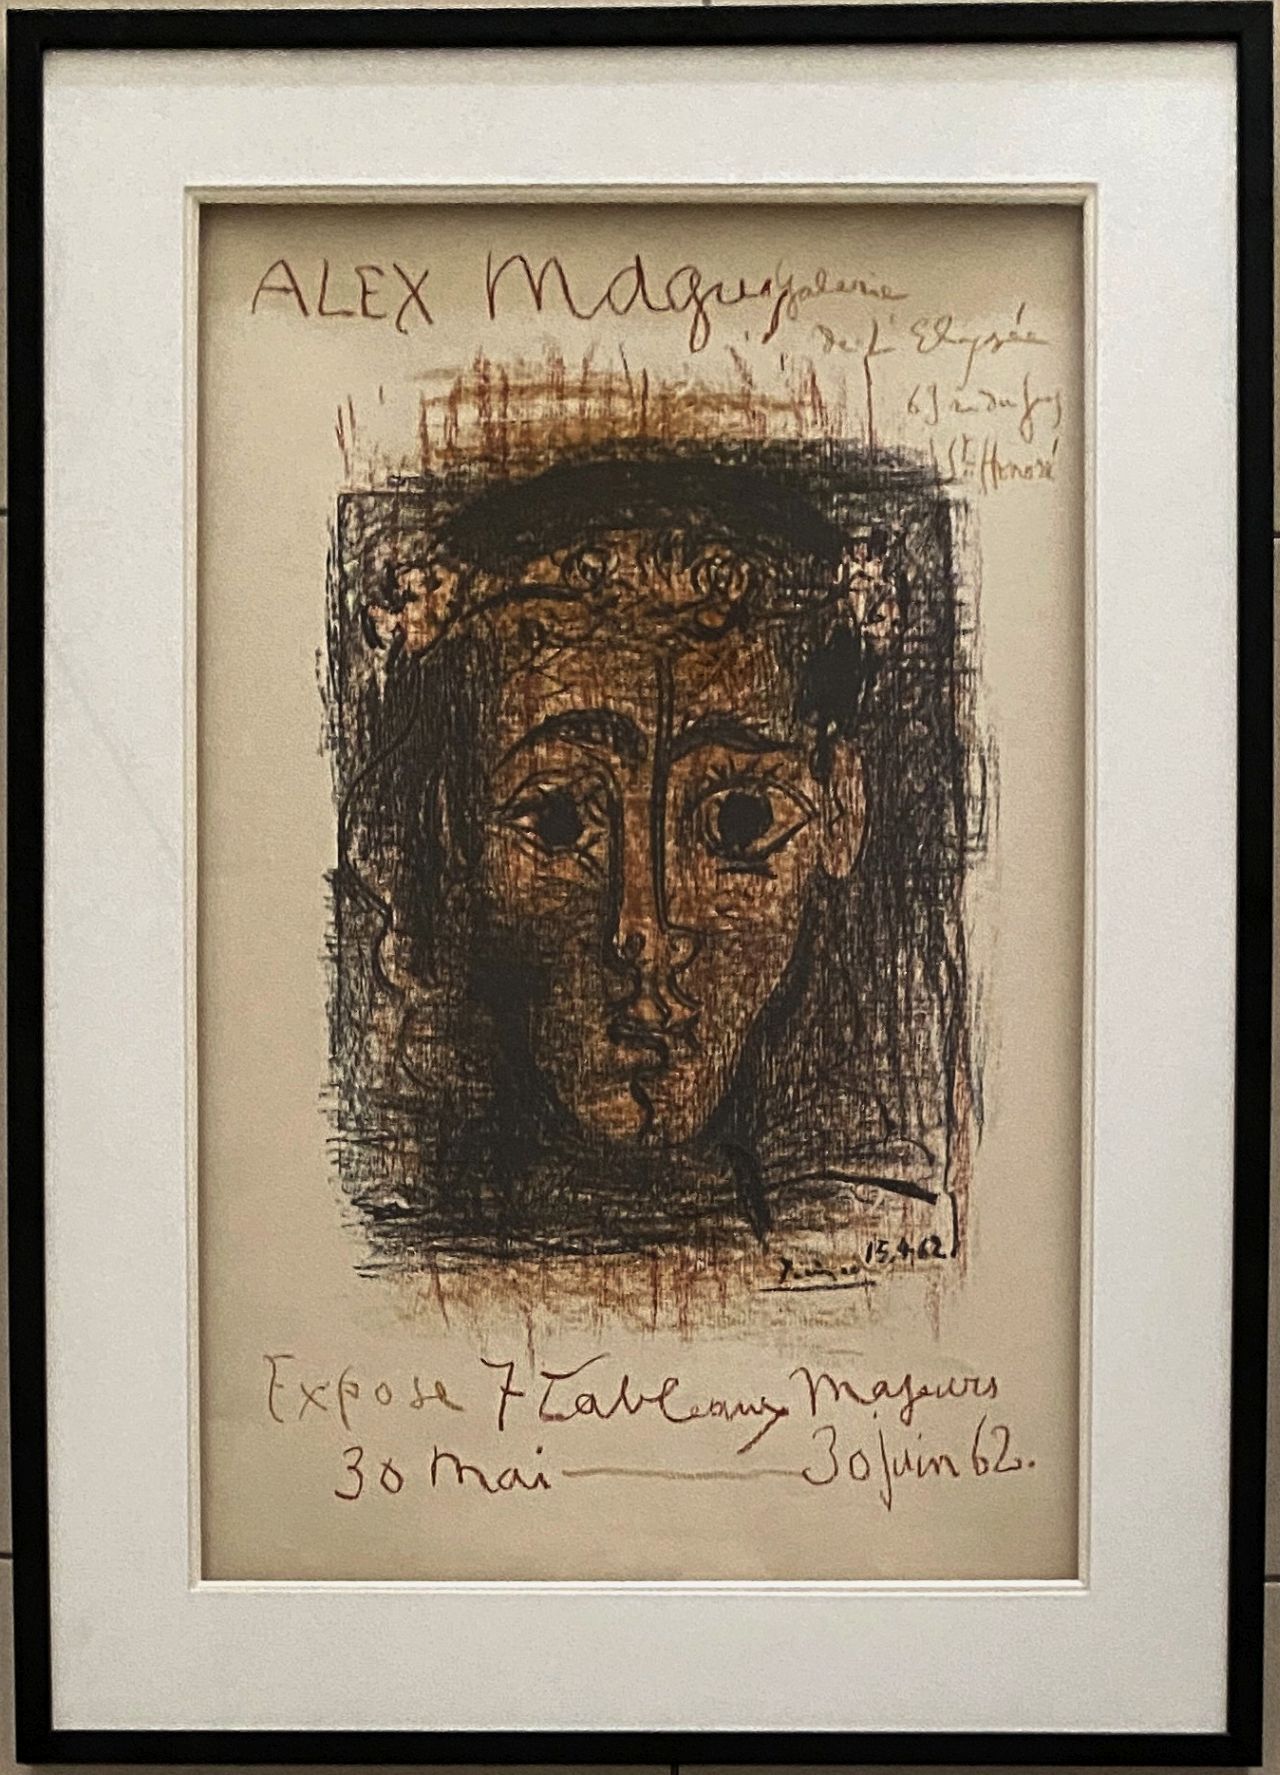 ALEX Maguy Galerie
de L'Elysée
69 rue du Fbg
St. Honoré
Picasso 15.4.62
Expose 7 Tableaux Majeurs
30 Mai — 30 Juin 62.